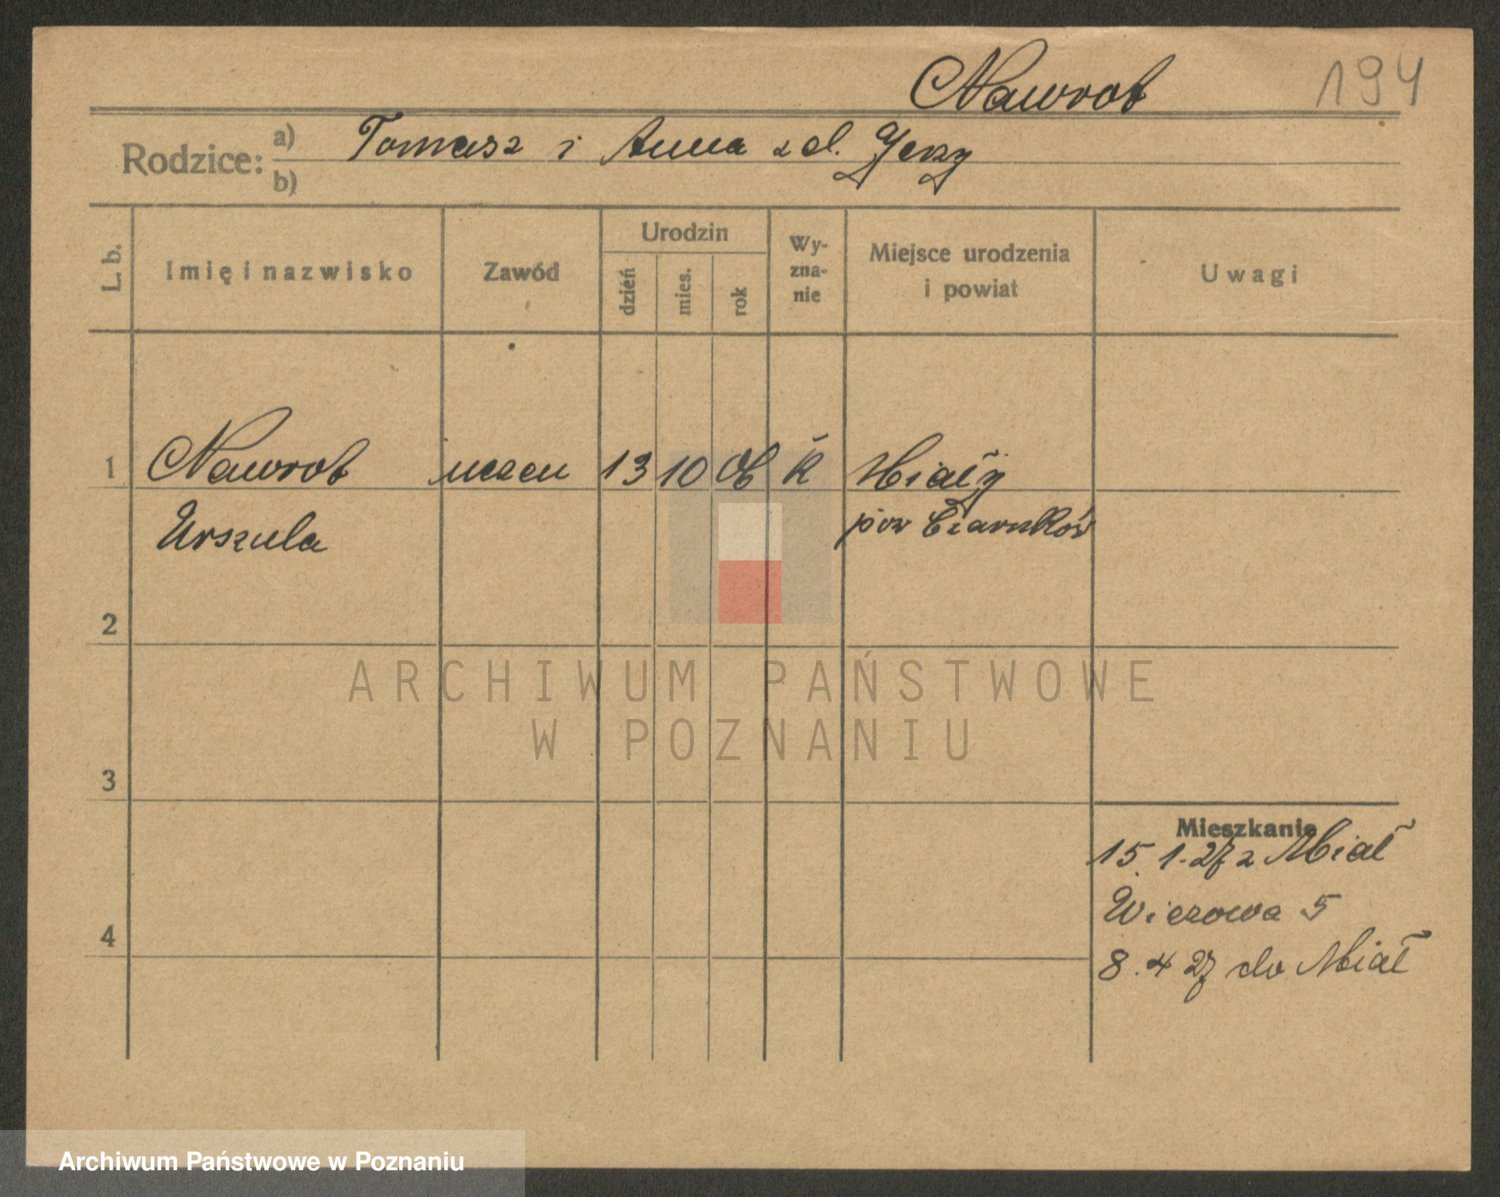 Nawrot 194
Rodzice: a) Tomasz i Anna z d. Jerzy
b)
L. b. Imię i nazwisko Zawód Urodzin dzień mies. rok Wy-zna-nie Miejsce urodzenia i powiat Uwagi
1 Nawrot uczen 13 10 06 k Miały
Urszula pow Czarnków
2
ARCHIWUM PAŃSTWOWE
W POZNANIU
3
Mieszkanie
15.1.27 z Miał
4 5
8.4 27 do Miał
Archiwum Państwowe w Poznaniu